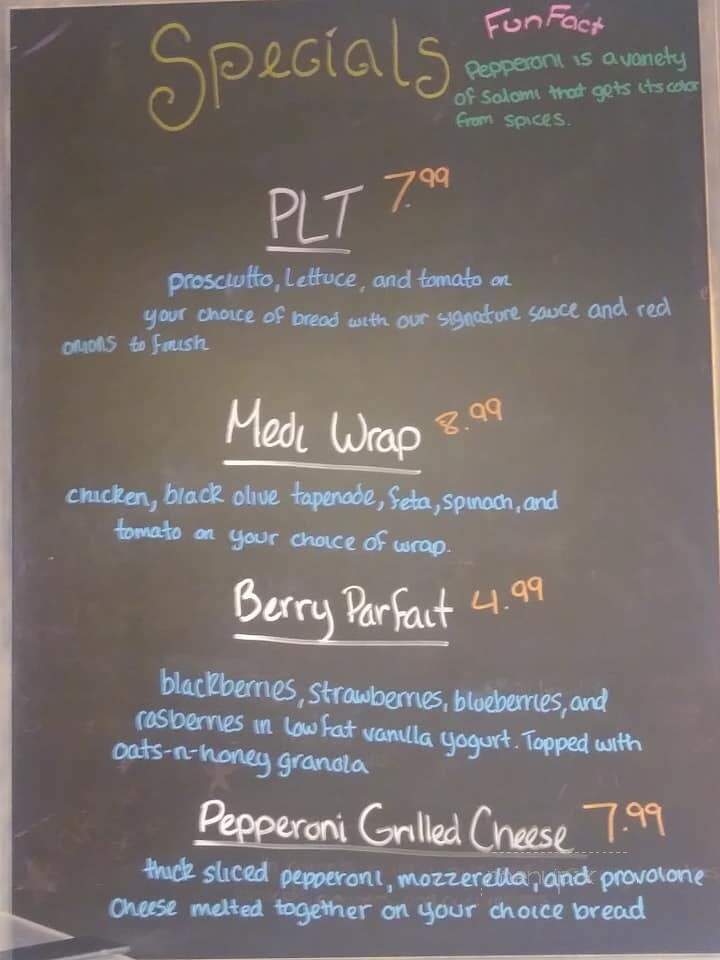 Specials
Fun Fact
Pepperoni is a variety
of Salami that gets its color
from spices.
PLT 7.99
prosciutto, Lettuce, and tomato on
your choice of bread with our signature sauce and red
onions to finish
Medi Wrap 8.99
chicken, black olive tapenade, feta, spinach, and
tomato on your choice of wrap.
Berry Parfait 4.99
blackberries, strawberries, blueberries, and
rasberries in low fat vanilla yogurt. Topped with
oats-n-honey granola
Pepperoni Grilled Cheese 7.99
thick sliced pepperoni, mozzerella, and provolone
cheese melted together on your choice bread